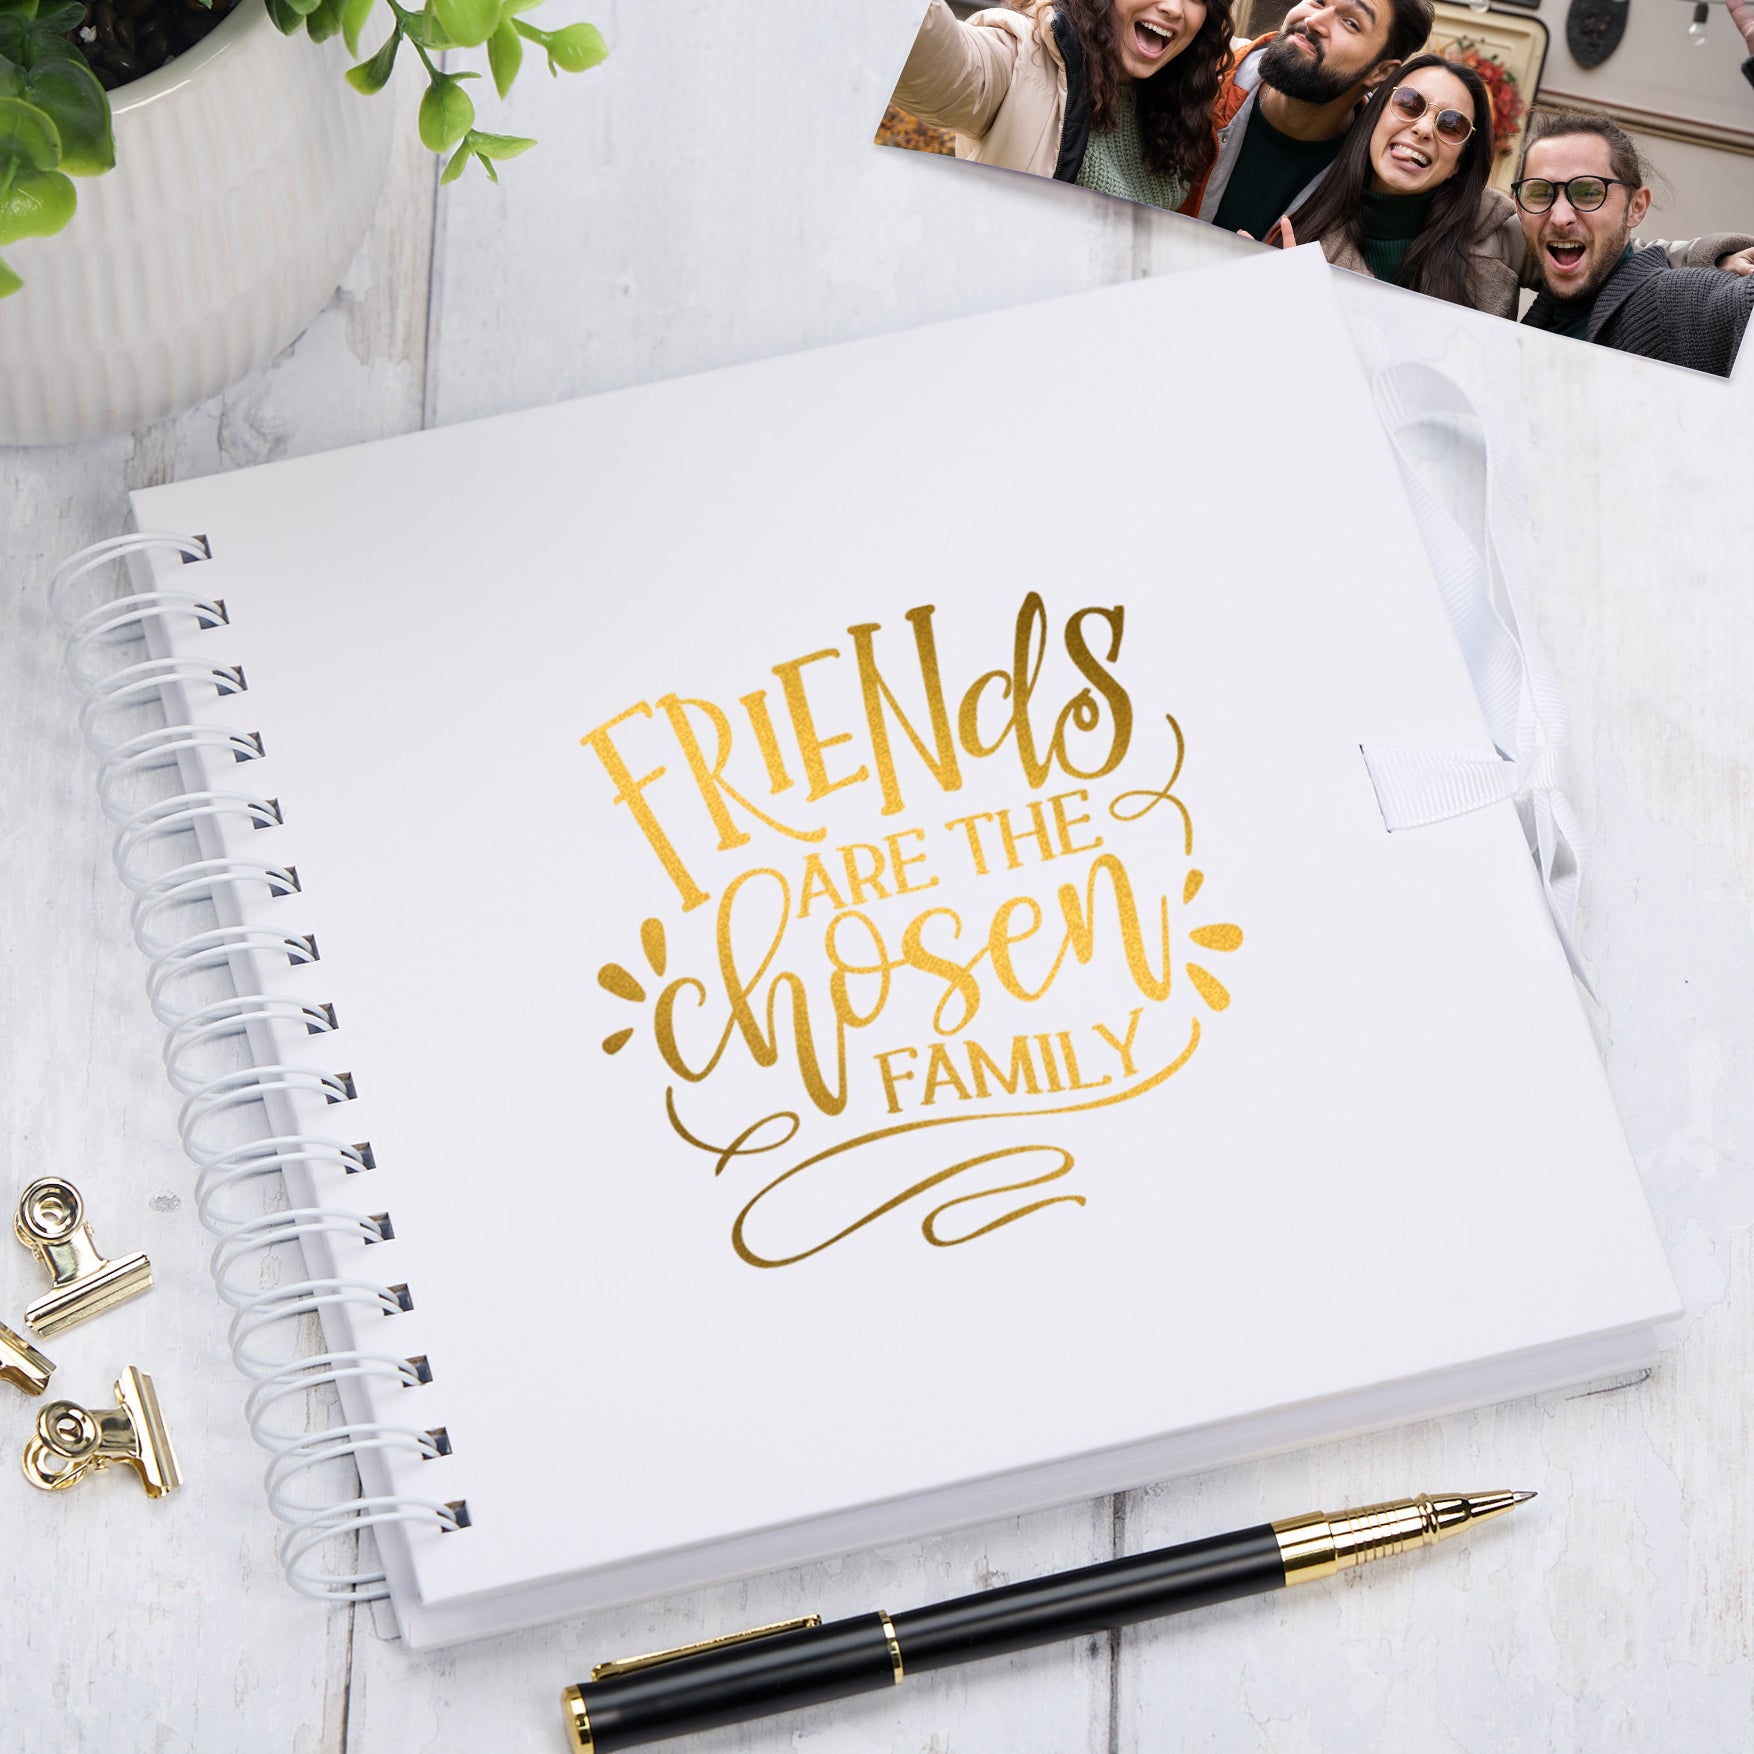 FRIENdS
ARE THE
chosen
FAMILY